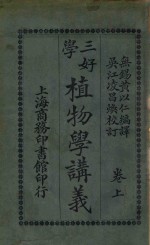 無錫黃以仁編譯
吳江凌昌煥校訂
卷上
三好學植物學講義
上海商務印書館印行